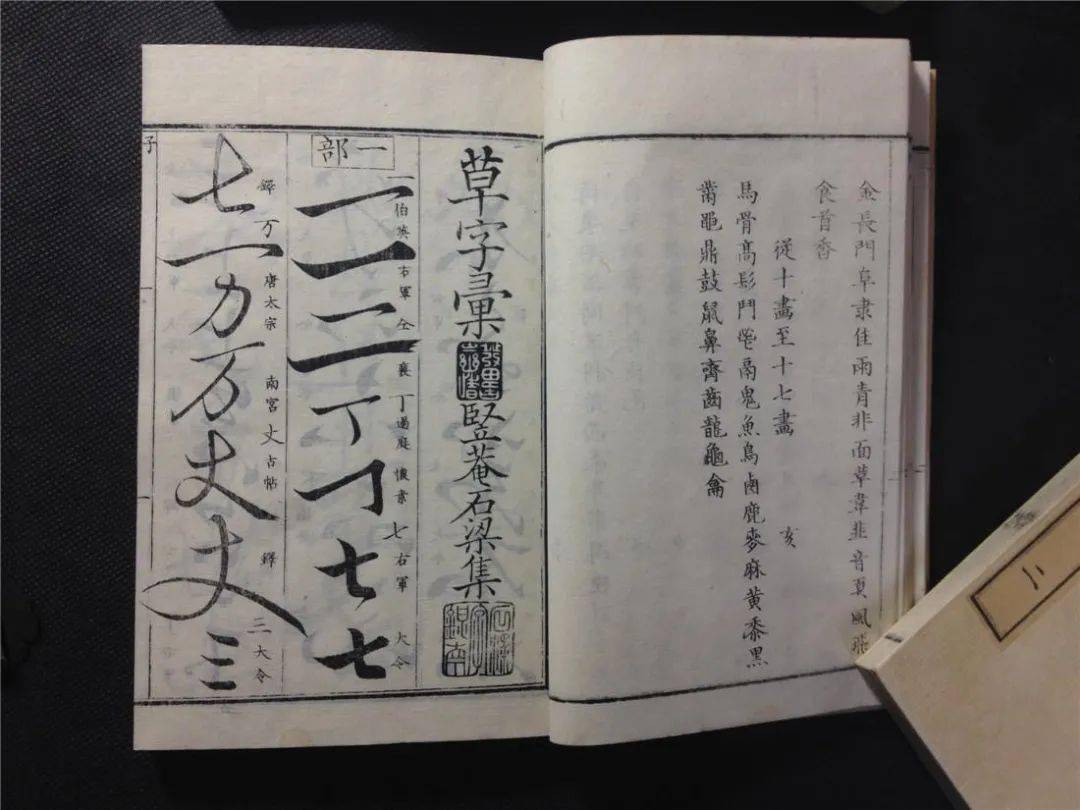 金長門阜隶隹雨青非面草韋韭音頁風飛
食首香
從十畫至十七畫 亥
馬骨高髟鬥鬯鬲鬼魚鳥鹵鹿麥麻黃黍黑
黹黽鼎鼓鼠鼻齊齒龍龜龠
草字彙
豎菴石梁集
一部
一 伯英 右軍 二 襄 丁 過庭 懷素 七 右軍 大令
一一二丁丁七七
鐸 万 唐太宗 南宮 丈 古帖 鐸 三 大令
七万万丈丈三
子
二